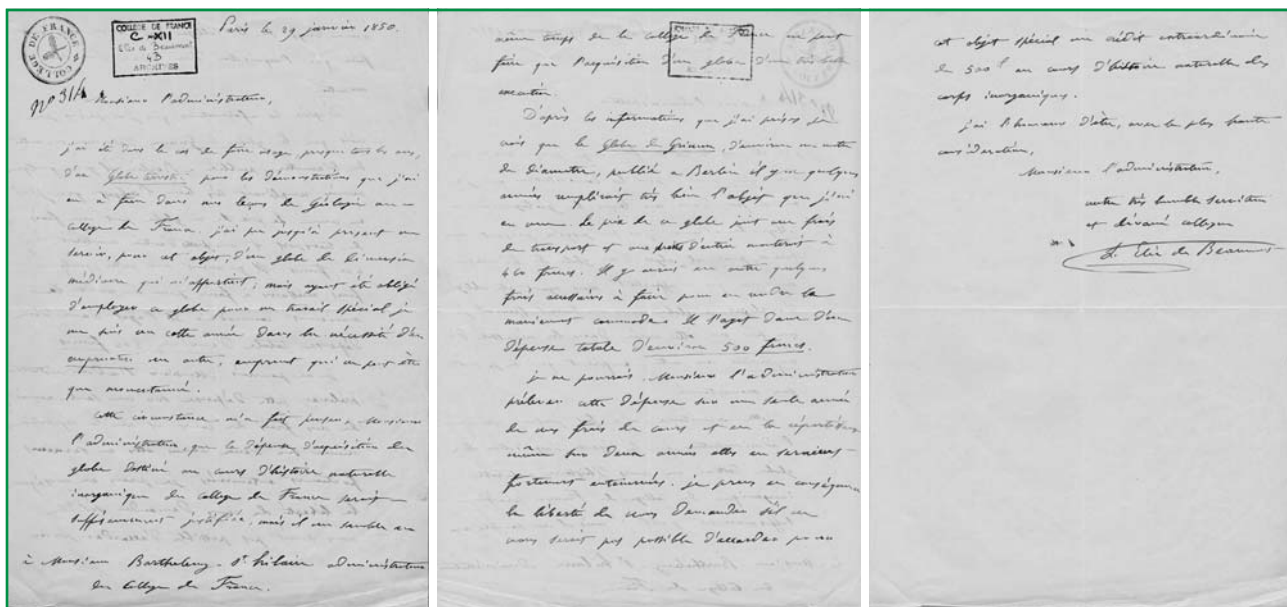 COLLEGE DE FRANCE
COLLEGE DE FRANCE
C-XII
Elie de Beaumont
43
ARCHIVES
Paris le 29 janvier 1850.
n° 314
Monsieur l'administrateur,
j'ai été dans le cas de faire usage, presque tous les ans,
d'un Globe terrestre pour les démonstrations que j'ai
eu à faire dans mes leçons de Géologie au
collège de France. j'ai pu jusqu'à présent me
servir, pour cet objet, d'un globe de dimension
médiocre qui m'appartient; mais ayant été obligé
d'employer ce globe pour un travail spécial je
me suis vu cette année dans la nécessité d'en
emprunter un autre, emprunt qui ne peut être
que momentané.
Cette circonstance m'a fait penser, Monsieur
l'administrateur, que la dépense d'acquisition d'un
globe destiné au cours d'histoire naturelle
inorganique du collège de France serait
suffisamment justifiée, mais il me semble en
à Monsieur Barthelemy-St hilaire administrateur
du Collège de France.
même temps de le collège de France ne peut
faire que l'acquisition d'un globe d'une
exécution.
D'après les informations que j'ai prises je
crois que le Globe de Grimm, d'environ un mètre
de diamètre, publié à Berlin il y a quelques
années remplirait très bien l'objet que j'ai
en vue. Le prix de ce globe joint aux frais
de transport et aux droits d'entrée monterait à
francs. Il y aurait en outre quelques
frais accessoires à faire pour en rendre le
maniement commode. Il s'agit donc d'une
dépense totale d'environ 500 francs.
je ne pourrais, Monsieur l'administrateur
prélever cette dépense sur une seule année
de mes frais de cours et en la répartissant
même sur deux années elles en seraient
fortement entamées. je prends en conséquence
la liberté de vous demander s'il ne
vous serait pas possible d'accorder pour
cet objet spécial un crédit extraordinaire
de 500f au cours d'histoire naturelle des
corps inorganiques.
j'ai l'honneur d'être, avec la plus haute
considération,
Monsieur l'administrateur,
votre très humble serviteur
et dévoué collègue
L. Elie de Beaumont